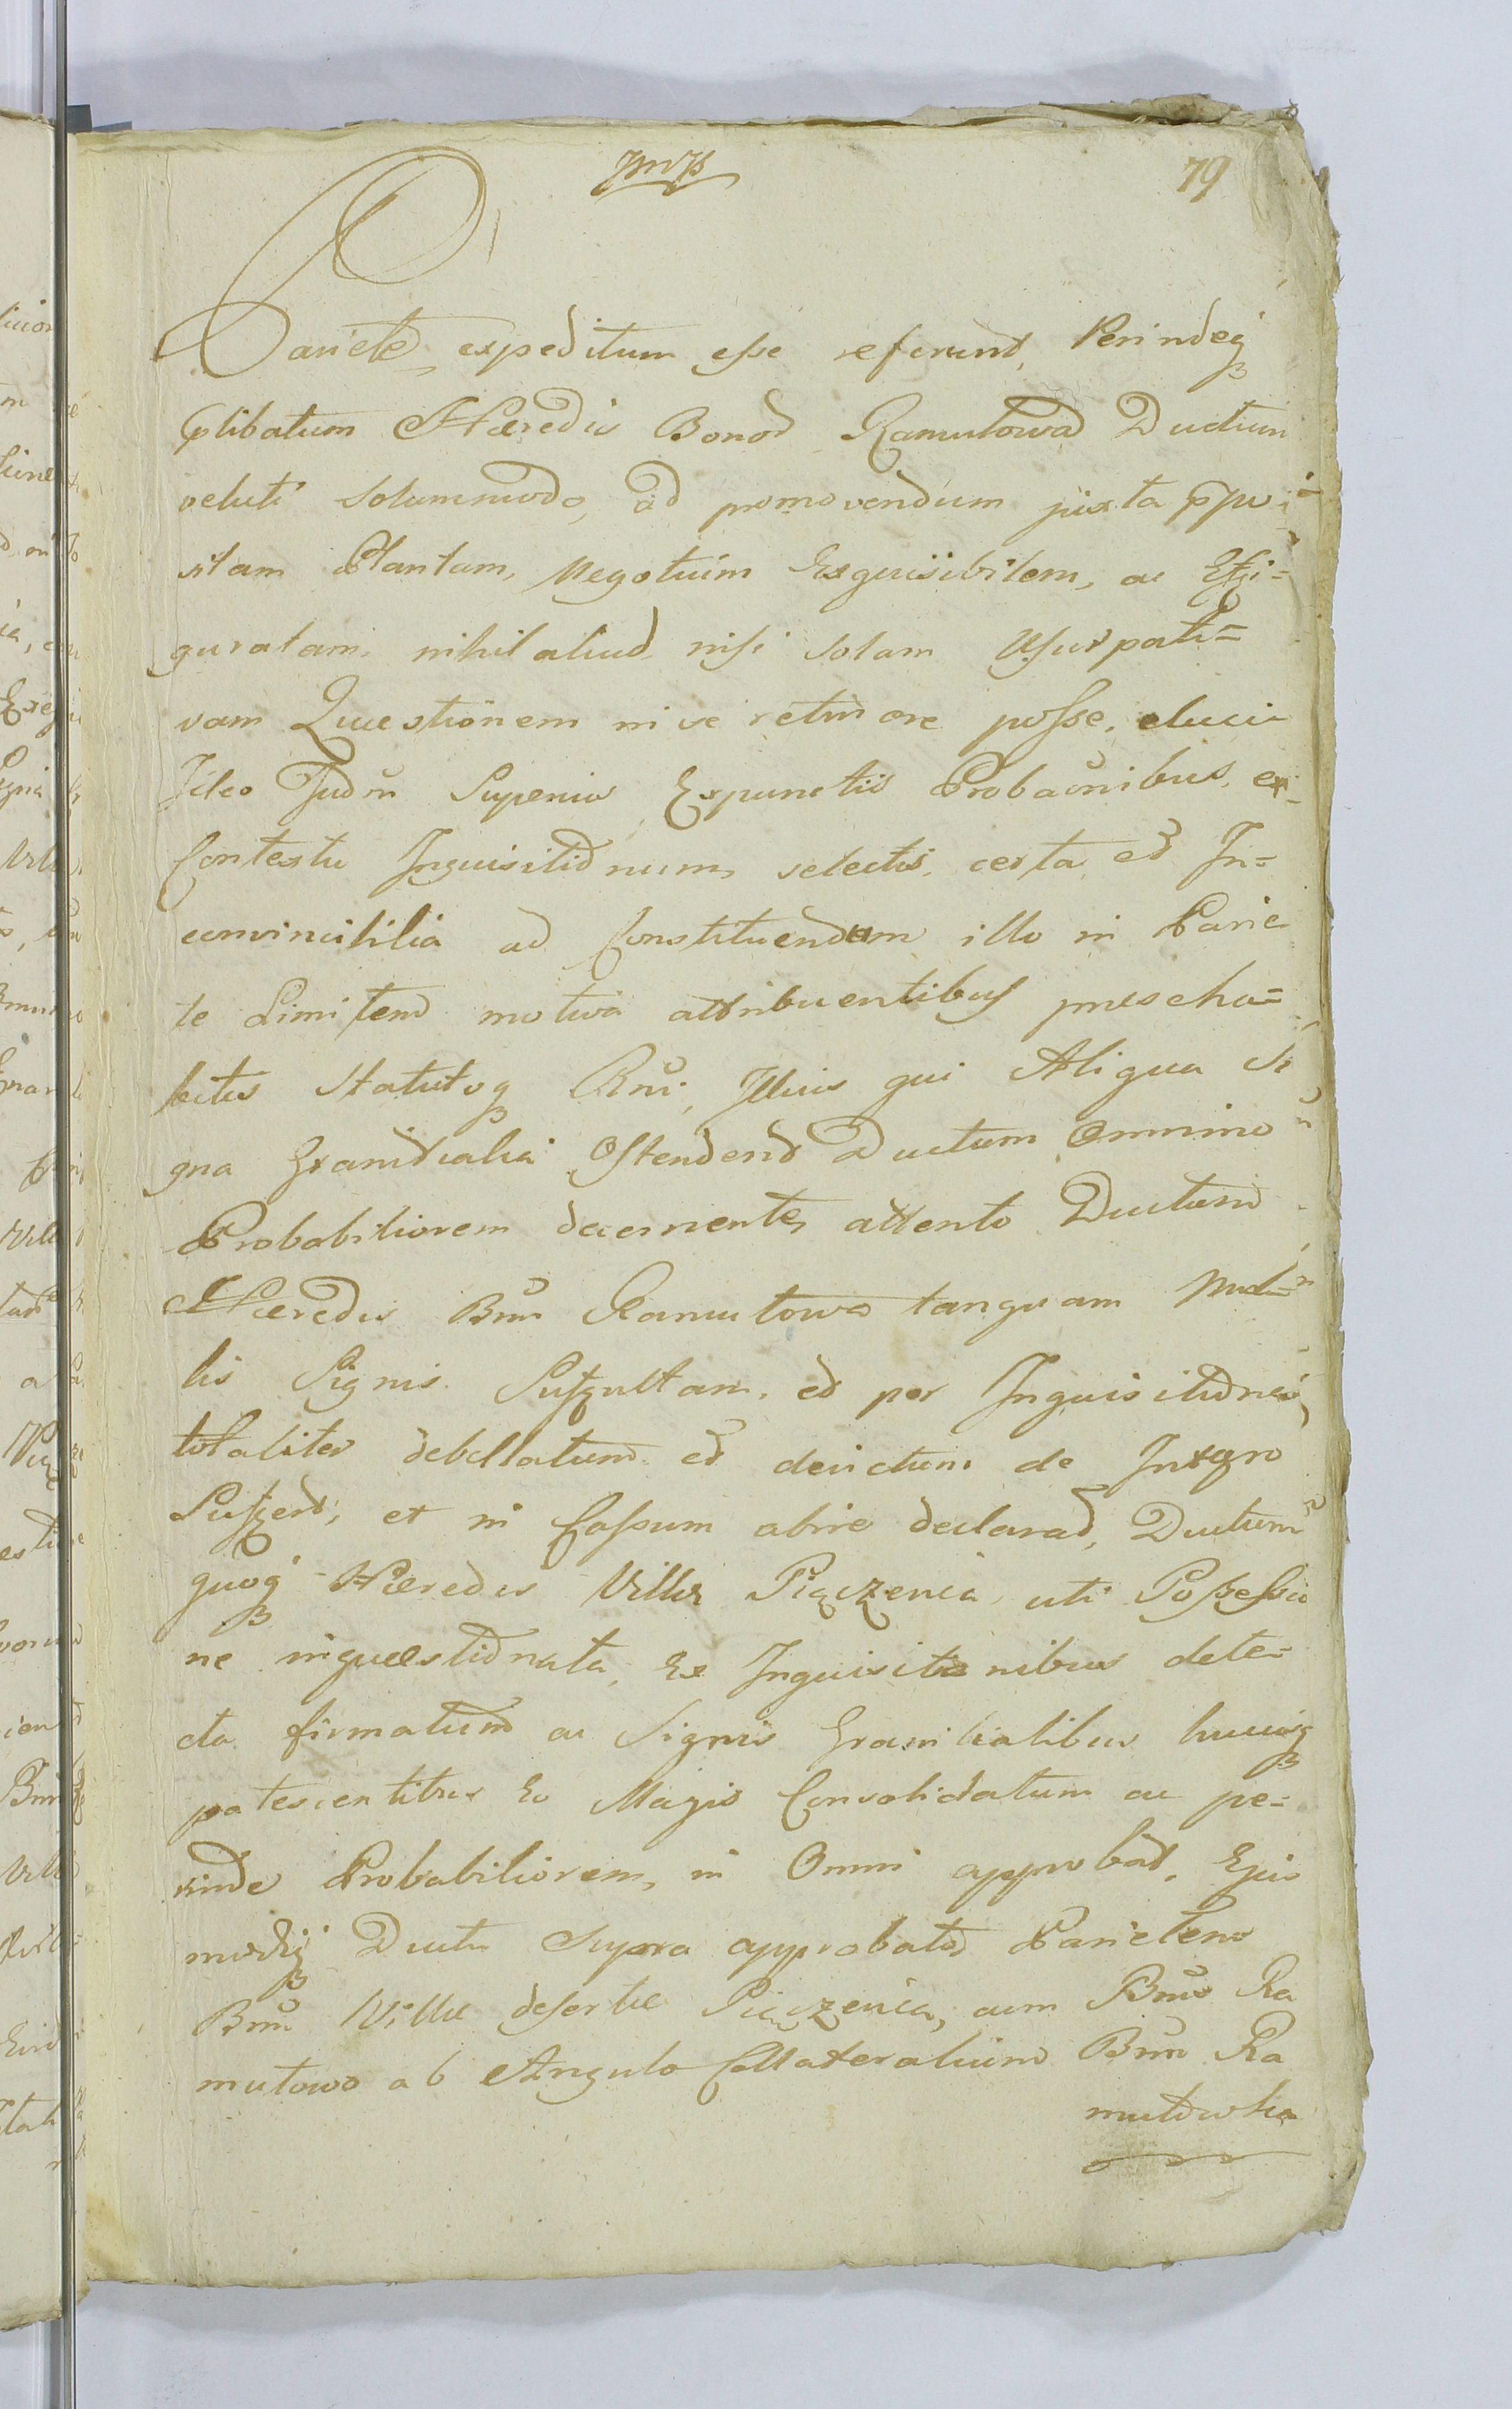 79
Pariete, expeditum esse referunt, Perindeq
plibatum Hæredis Bonor Ramutowa Ductum
veluti solummodo, ad promovendum juxta
sitam Plantam, Negotium Exquisibilem, ac Effi=
guratam nihil aliud nisi solam Usurpati=
vam Quæstionem in se retinere posse,
Ideo Judm Superius Expunctis Probaonibus, ex
Contextu Inquisitionum, selectis, certa et In=
convincibilia ad Constituendum illo in Parie
te Limitem motiva attribuentibus
Statutoq Rni, Illius qui Aliqua Si
gna Granicialia Ostenderit Ductum Omnino
Probabiliorem decernente, attento Ductum
Hæredis Bnm Ramutowo tanquam Nul=
lis Signis Suffultam, et per Inquisitiones
totaliter debellatum et devictum de Integro
et in Cassum abire declarat, Ductum
quoq Hæredis Villæ Piączenia, uti Possessio
ne inquæstionata, Ex Inquisitionibus dete=
cta firmatum ac Signis Granicialibus hucusq
patescentibus Eo Magis Consolidatum ac pe=
rinde Probabiliorem, in Omni approbat, Ejus
modiq Ductu Supra approbato Parietem
Bnm Villæ desertæ Piączenia, cum Bnis Ra
mutowo ab Angulo Collateralium Bnm Ra
mutowka